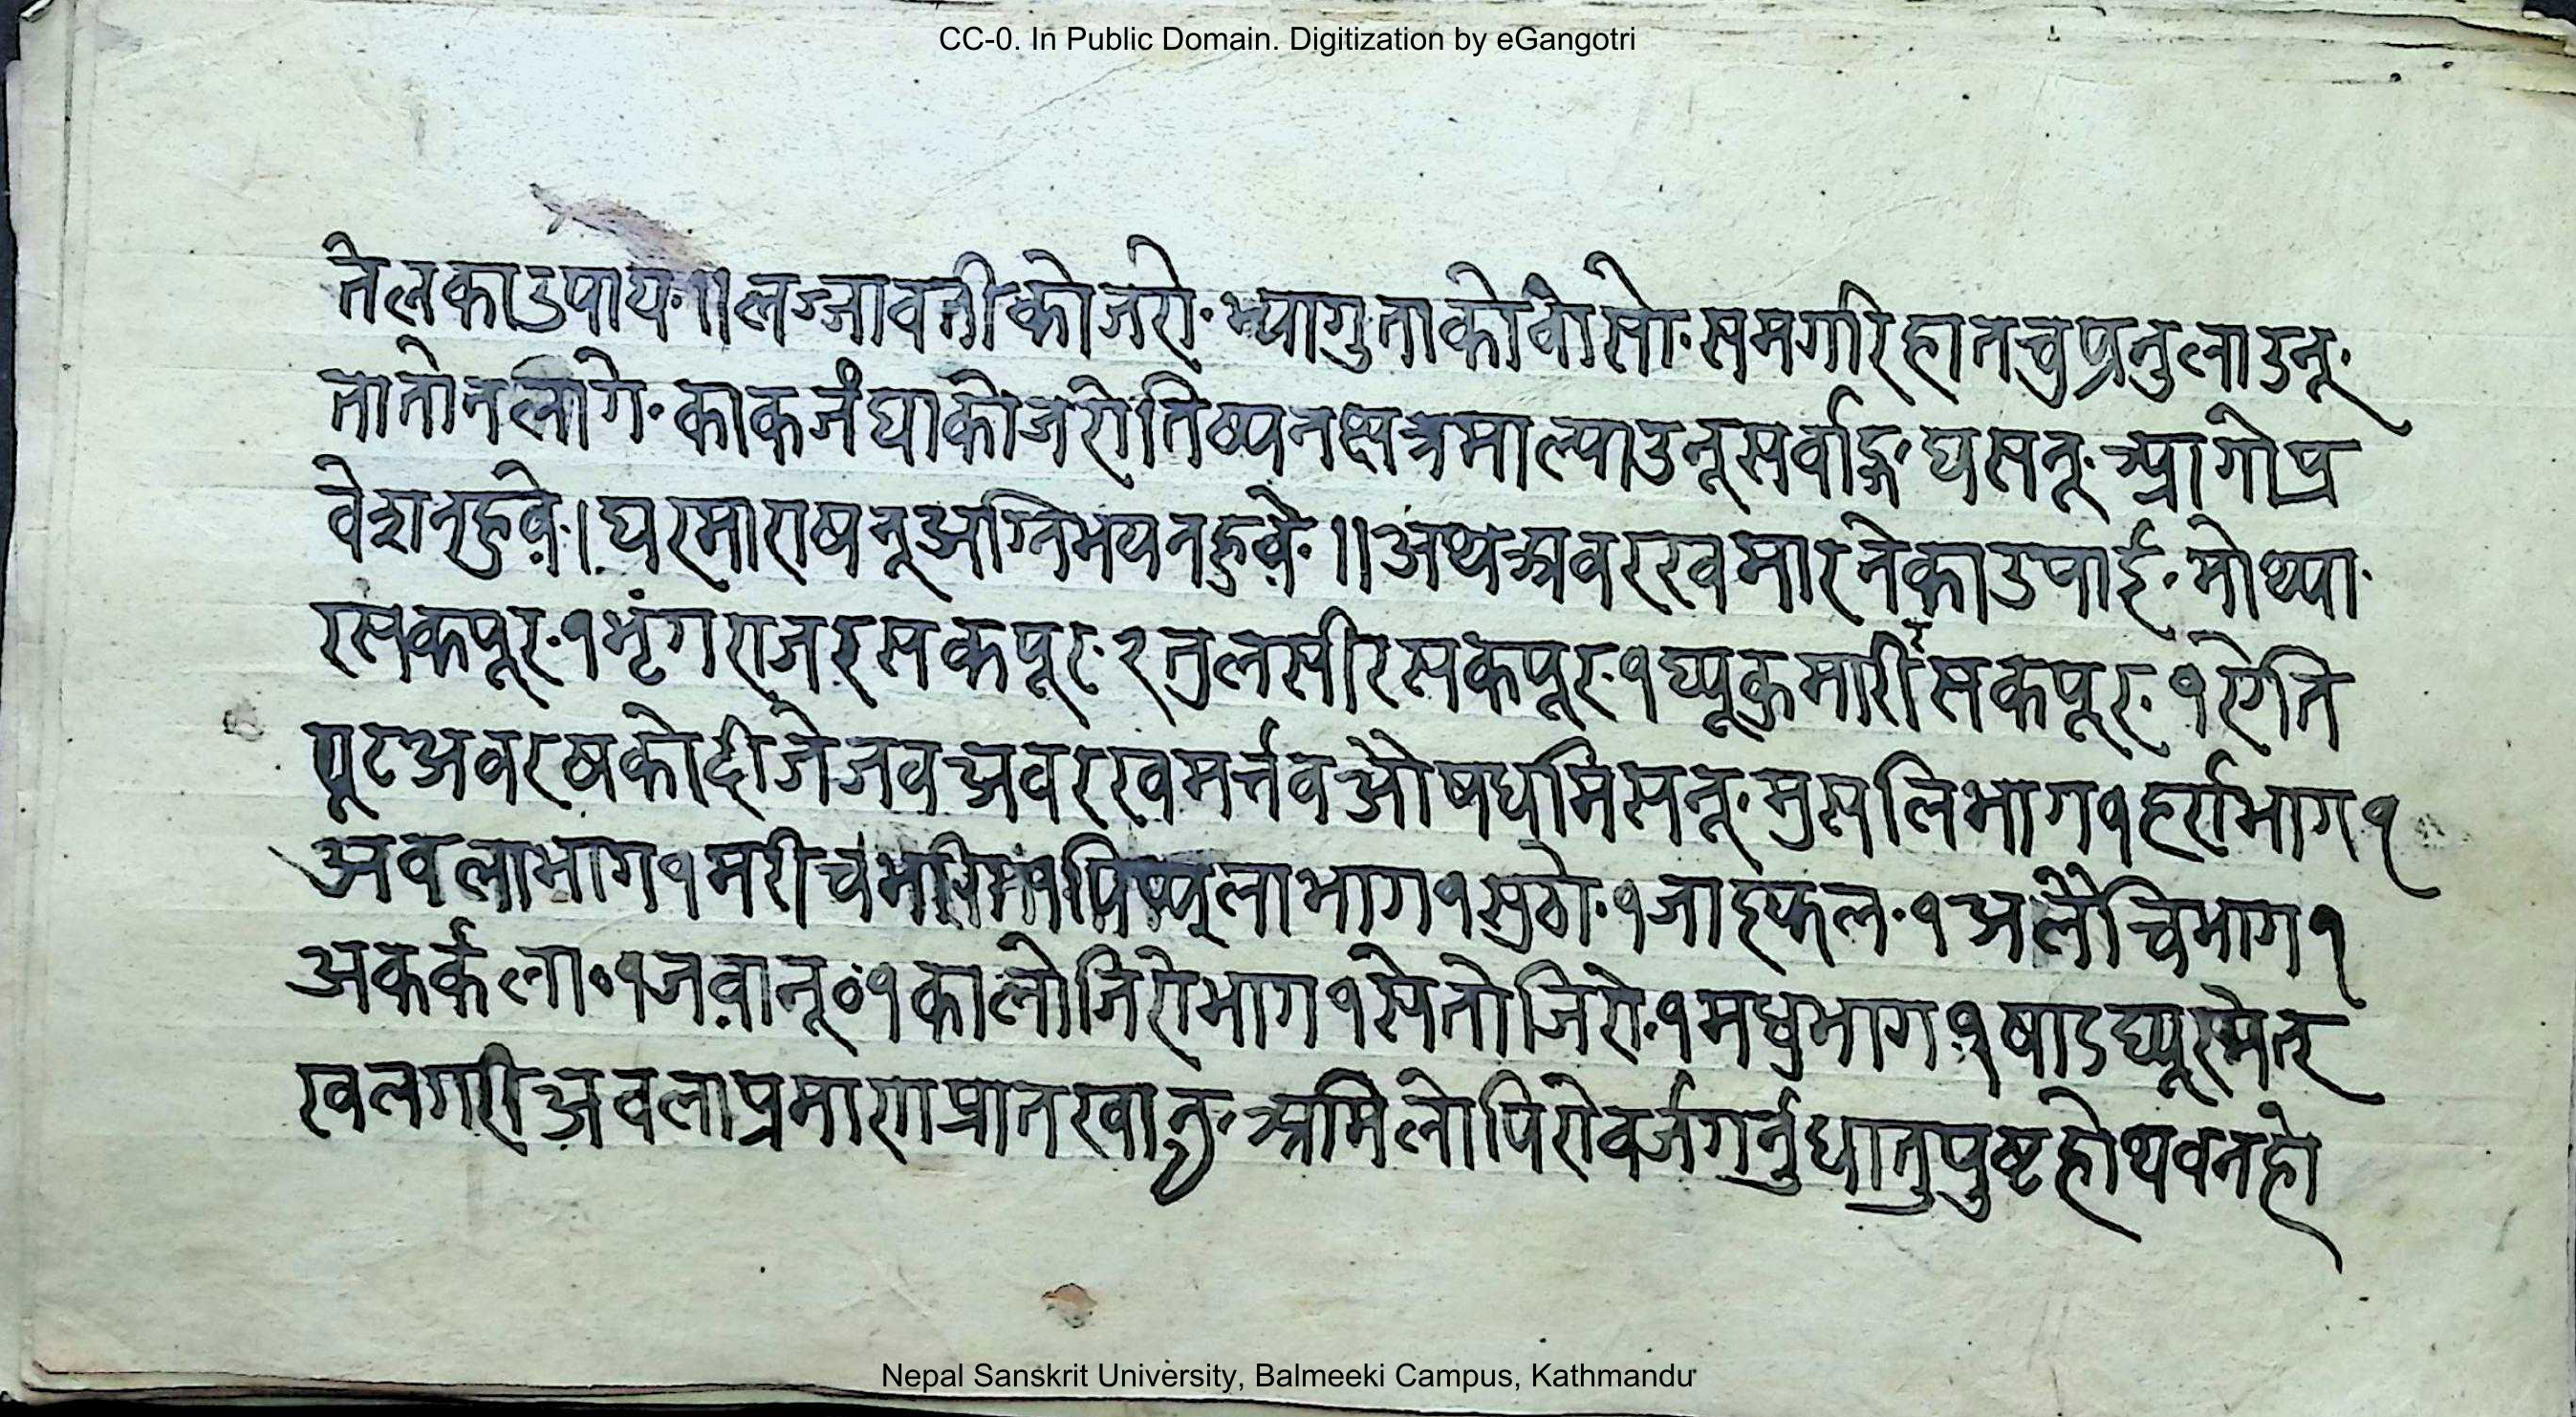 CC-0. In Public Domain. Digitization by eGangotri
तेलकाउपाय॰॥लज्जावतीकोजरो॰भ्यागुताकोवोसो॰समगरिहातचुप्रनुलाउनू॰
तातोनलागे॰काकजंघाकोजरोतिष्यनक्षत्रमाल्याउनूसर्वाङ्ग॰घसनू॰आगोप्र
वेशनहुवे॰।घरमाराषनूअग्निभयनहुवे॰॥अथअवरखमारनेकाउपाई॰मोथ्या॰
रसकपूर॰१भृंगराजरसकपूर॰२तुलसीरसकपूर॰१घ्यूकुमारीरसकपूर॰१येति
पूटअवरषकोदीजेजवअवरखमर्त्तवऔषधमिसनू॰मुसलिभाग१हर्राभाग१
अवलाभाग१मरीच १पिप्पलाभाग१सुठो॰१जाइफल॰१अलैचिभाग१
अकर्कला॰१जवानू॰१कालोजिरोभाग१सेतोजिरो॰१मधुभाग१षाडघ्यूस्मेत
खलगरीअवलाप्रमाणप्रातखानु॰अमिलोपिरोवर्जगर्नुधातुपुष्टहोथवनहो
Nepal Sanskrit University, Balmeeki Campus, Kathmandu